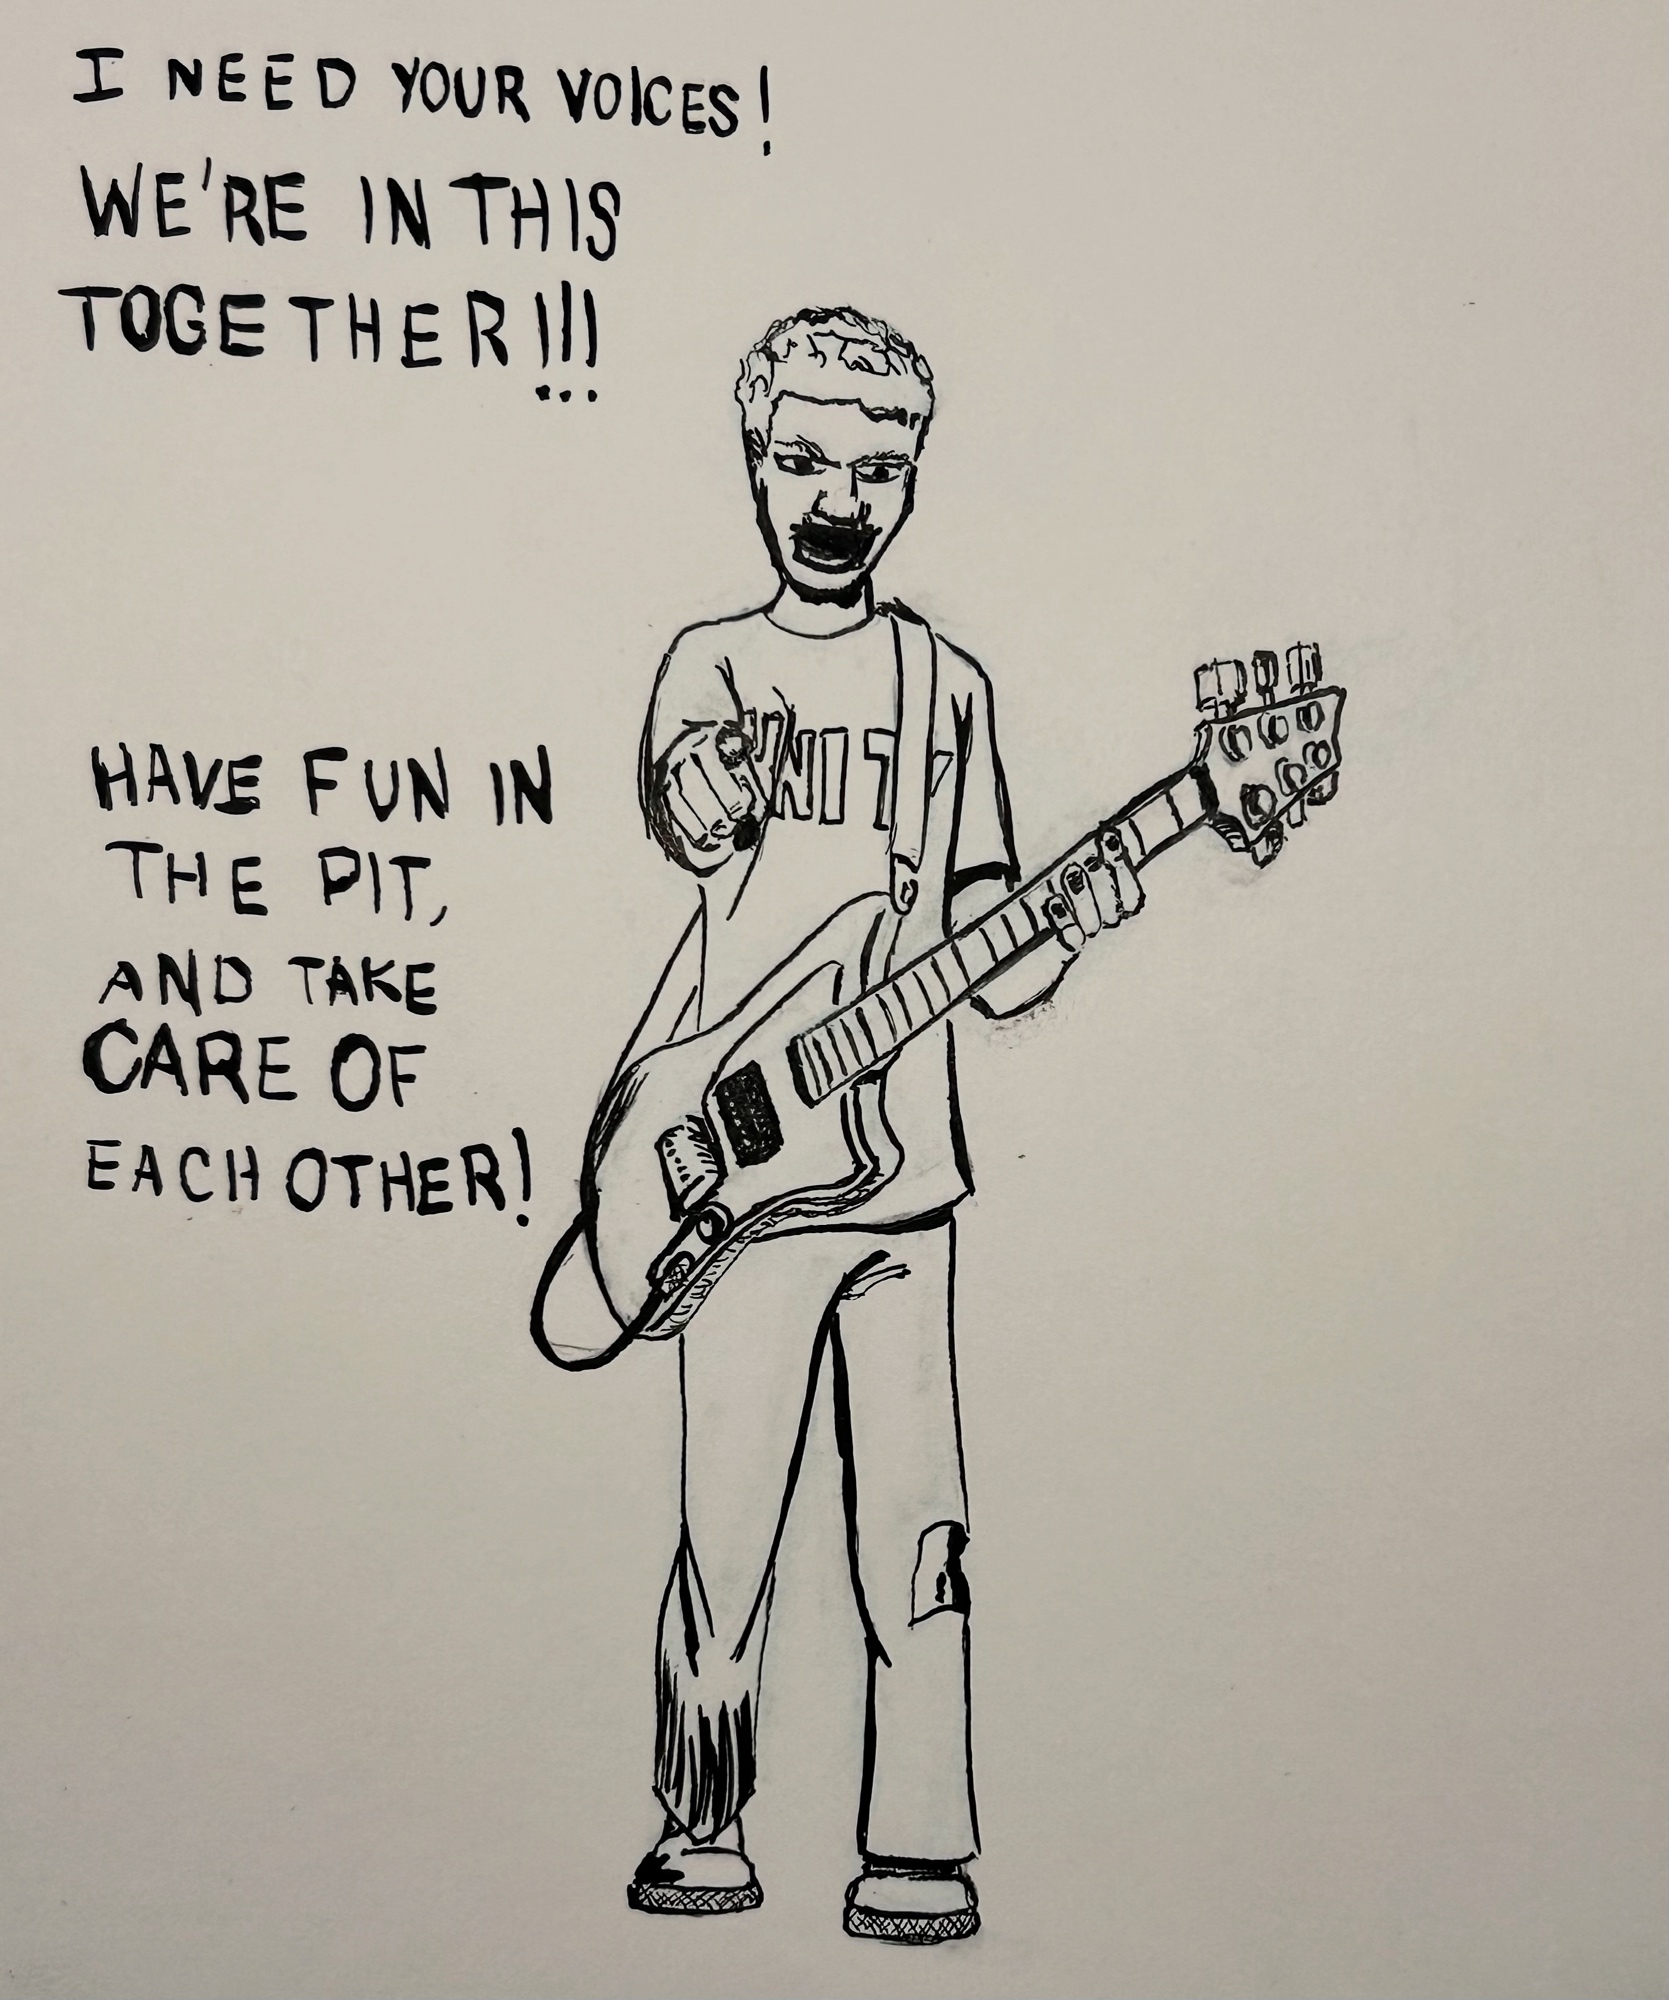 I NEED YOUR VOICES!
WE'RE IN THIS
TOGETHER!!!
UNITY
HAVE FUN IN
THE PIT,
AND TAKE
CARE OF
EACH OTHER!